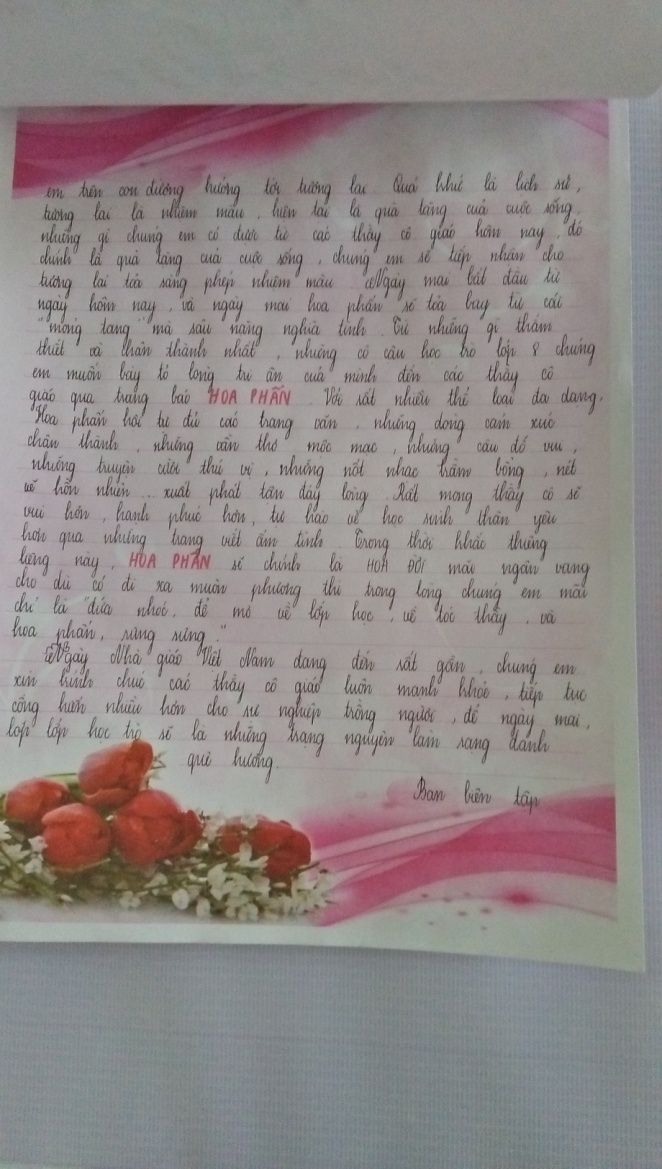 em trên con đường hướng tới tương lai. Quá khứ là lịch sử,
tương lai là nhiệm màu, hiện tại là quà tặng của cuộc sống.
những gì chúng em có được từ các thầy cô giáo hôm nay, đó
chính là quà tặng của cuộc sống, chúng em sẽ tiếp nhận cho
tương lai tỏa sáng phép nhiệm màu. Ngày mai bắt đầu từ
ngày hôm nay, và ngày mai hoa phấn sẽ tỏa bay từ cái
"mỏng tang" mà sâu nặng nghĩa tình. Từ những gì thắm
thiết và chân thành nhất, những cô cậu học trò lớp 8 chúng
em muốn bày tỏ lòng tri ân của mình đến các thầy cô
giáo qua trang báo HOA PHẤN. Với rất nhiều thể loại đa dạng,
Hoa phấn hội tụ đủ các trang văn, những dòng cảm xúc
chân thành, những vần thơ mộc mạc, những câu đố vui,
những truyện cười thú vị, những nốt nhạc trầm bổng, nét
vẽ hồn nhiên... xuất phát tận đáy lòng. Rất mong thầy cô sẽ
vui hơn, hạnh phúc hơn, tự hào về học sinh thân yêu
hơn qua những trang viết ấm tình. Trong thời khắc thiêng
liêng này, HOA PHẤN sẽ chính là HOA ĐỜI mãi ngân vang
cho dù có đi xa muôn phương thì trong lòng chúng em mãi
chỉ là "đứa nhóc, để mơ về lớp học, về tóc thầy, và
hoa phấn, rưng rưng."
Ngày Nhà giáo Việt Nam đang đến rất gần, chúng em
xin kính chúc các thầy cô giáo luôn mạnh khỏe, tiếp tục
cống hiến nhiều hơn cho sự nghiệp trồng người, để ngày mai,
lớp lớp học trò sẽ là những trạng nguyên làm rạng danh
quê hương.
Ban biên tập